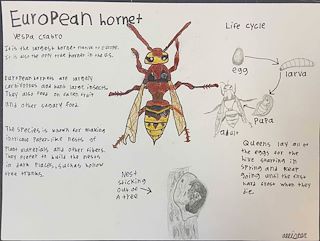 European hornet
Vespa crabro
It is the largest hornet native to Europe.
It is also the only true hornet in the U.S.
European hornets are largely
carnivorous and hunt large insects.
They also feed on fallen fruit
and other sugary food.
The species is known for making
intricate paper-like nests of
plant materials and other fibers.
They prefer to build the nests
in dark places, such as hollow
tree trunks.
Nest
sticking
out of
a tree
Life cycle
egg
larva
pupa
adult
Queens lay all of
the eggs for the
hive starting in
spring and keep
going until the first
hard frost when they
die.